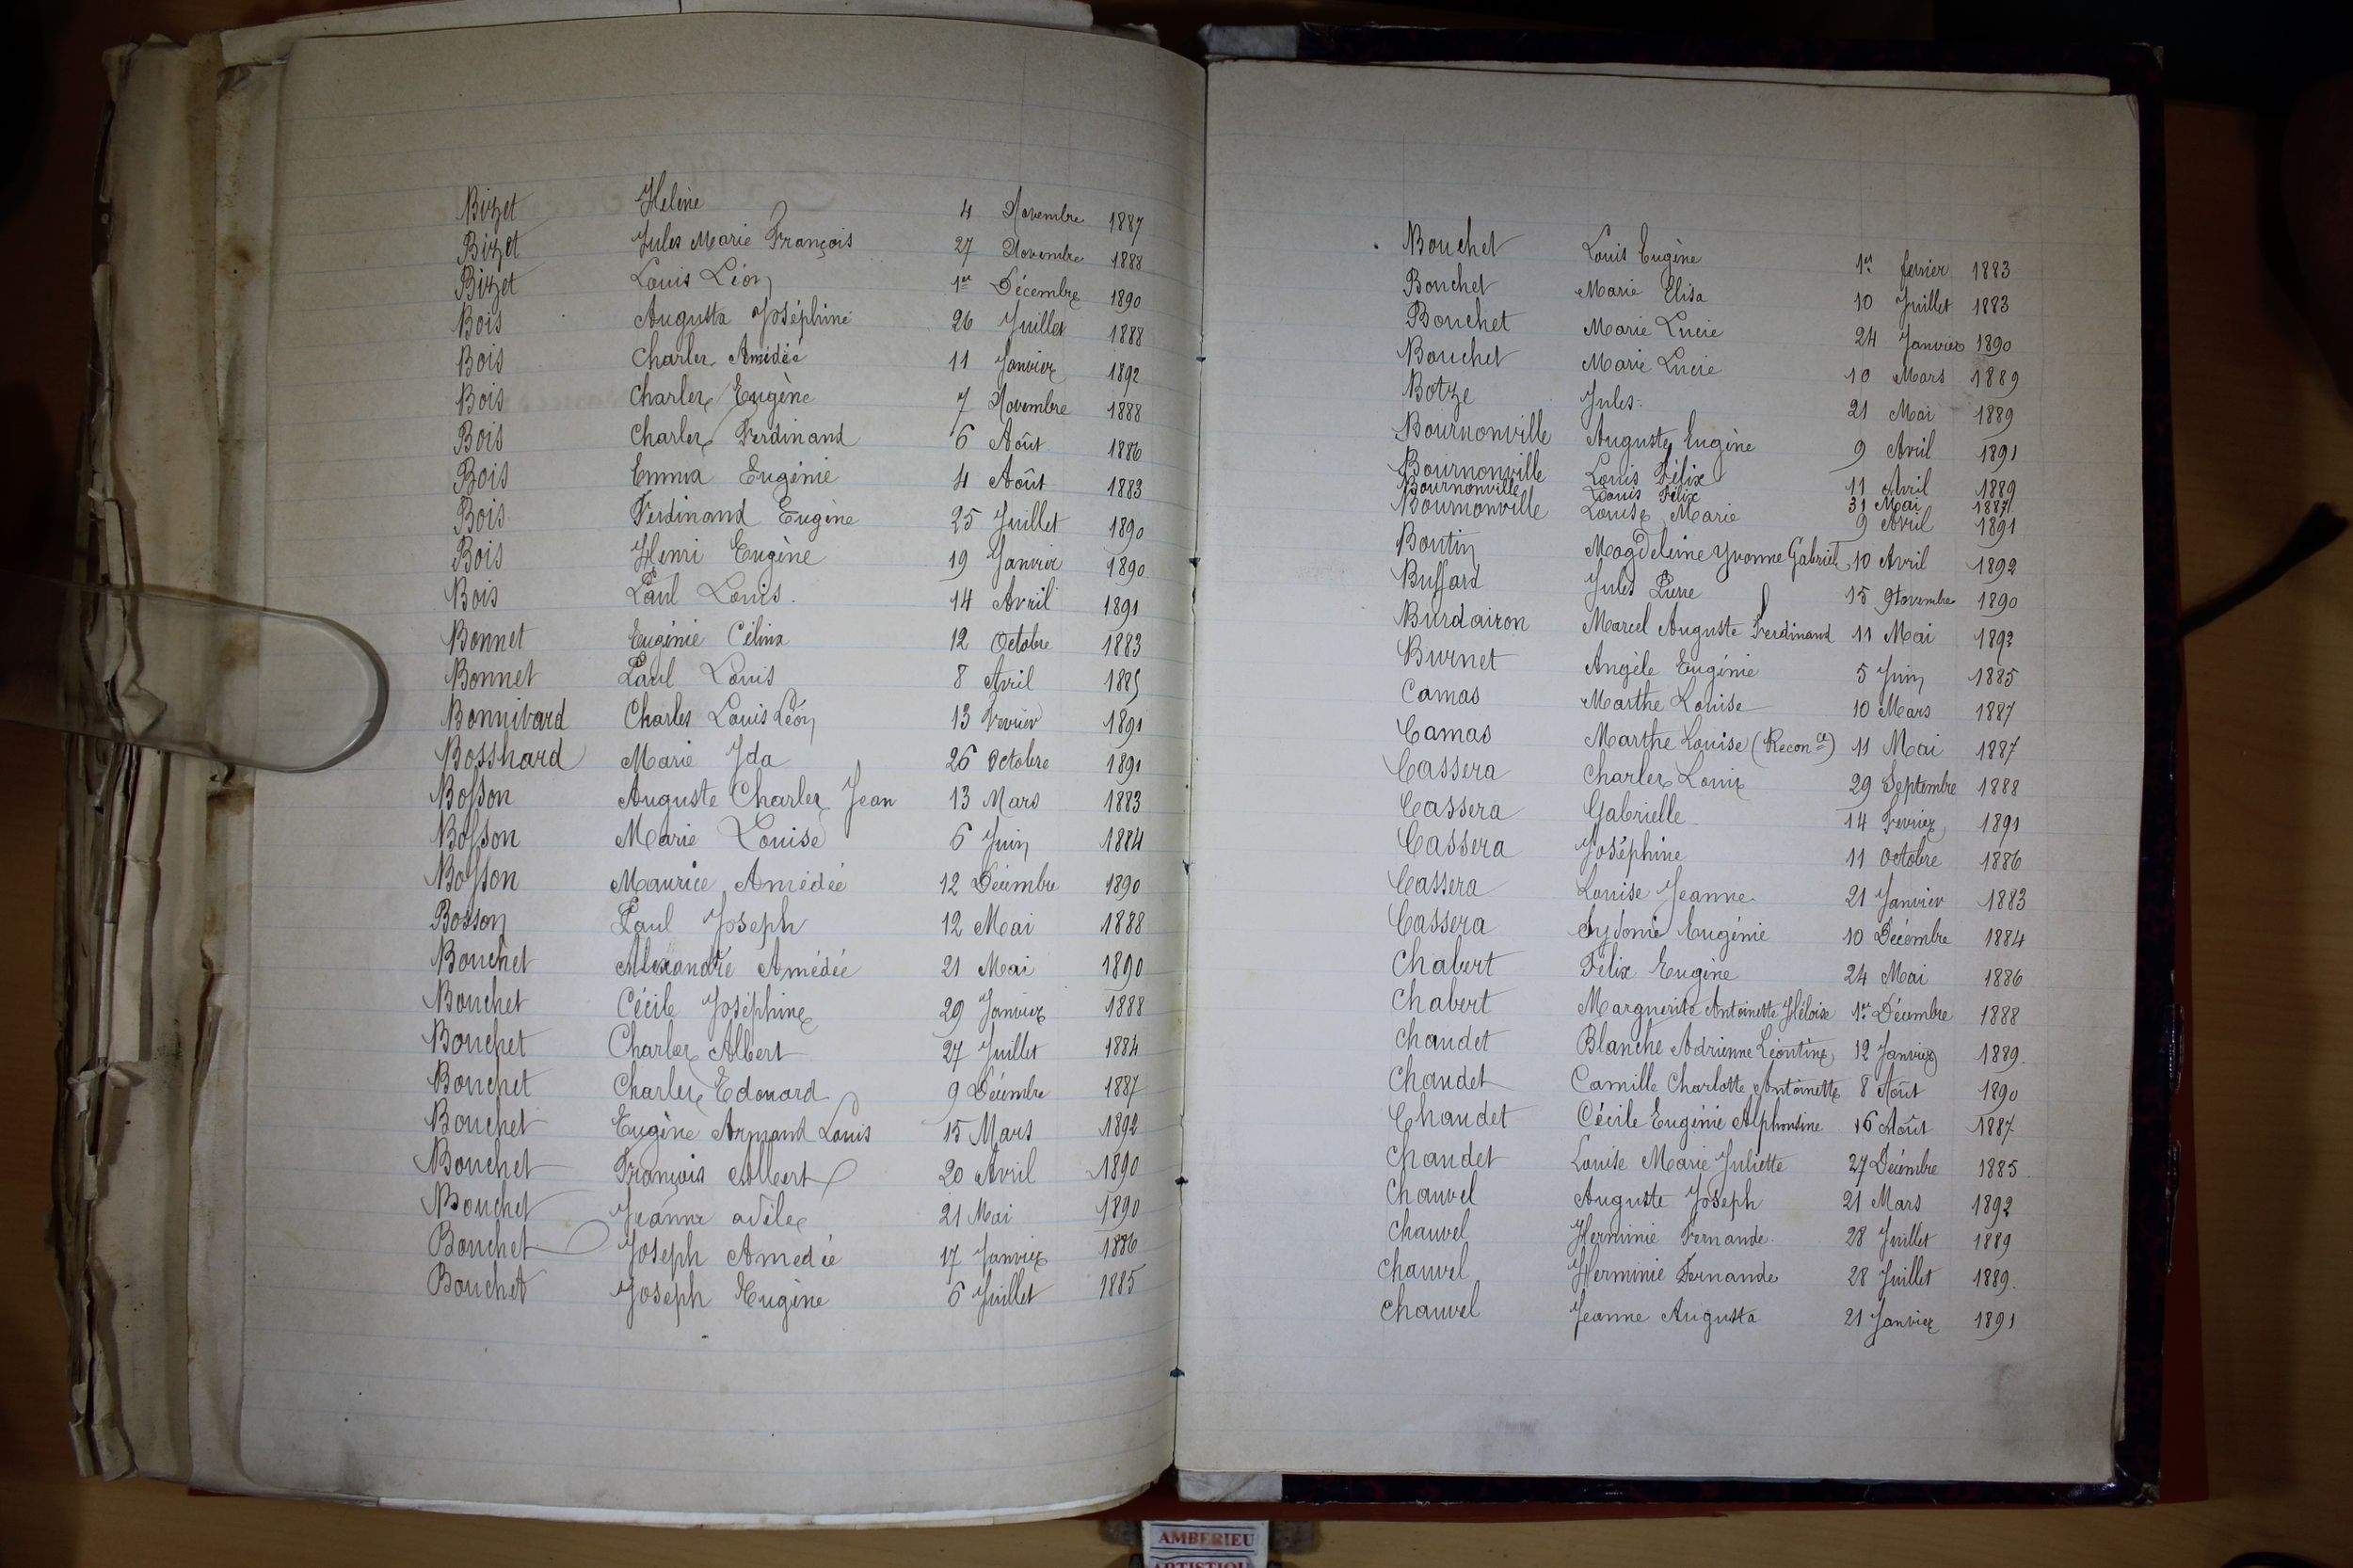 Bizet Hélène 4 Novembre 1887
Bizet Jules Marie François 27 Novembre 1888
Bizet Louis Léon 1er Décembre 1890
Bois Augusta Joséphine 26 Juillet 1888
Bois Charles Amédée 11 Janvier 1892
Bois Charles Eugène 7 Novembre 1888
Bois Charles Ferdinand 6 Août 1886
Bois Emma Eugénie 4 Août 1883
Bois Ferdinand Eugène 25 Juillet 1890
Bois Henri Eugène 19 Janvier 1890
Bois Paul Louis 14 Avril 1891
Bonnet Eugénie Célina 12 Octobre 1883
Bonnet Paul Louis 8 Avril 1885
Bonnivard Charles Louis Léon 13 Février 1891
Bosshard Marie Ida 26 Octobre 1891
Bosson Auguste Charles Jean 13 Mars 1883
Bosson Marie Louise 6 Juin 1884
Bosson Maurice Amédée 12 Décembre 1890
Bosson Paul Joseph 12 Mai 1888
Bouchet Alexandre Amédée 21 Mai 1890
Bouchet Cécile Joséphine 29 Janvier 1888
Bouchet Charles Albert 27 Juillet 1884
Bouchet Charles Edouard 9 Décembre 1887
Bouchet Eugène Armand Louis 15 Mars 1892
Bouchet François Albert 20 Avril 1890
Bouchet Jeanne adèle 21 Mai 1890
Bouchet Joseph Amedée 17 Janvier 1886
Bouchet Joseph Eugène 6 Juillet 1885
Bouchet Louis Eugène 1er février 1883
Bouchet Marie Elisa 10 Juillet 1883
Bouchet Marie Lucie 24 Janvier 1890
Bouchet Marie Lucie 10 Mars 1889
Botze Jules 21 Mai 1889
Bournonville Auguste Eugène 9 Avril 1891
Bournonville Louis Félix 11 Avril 1889
Bournonville Louis Félix 31 Mai 1887
Bournonville Louise Marie 9 Avril 1891
Boutin Magdeleine Yvonne Gabriel 10 Avril 1892
Buffard Jules Pierre 15 Novembre 1890
Burdairon Marcel Auguste Ferdinand 11 Mai 1892
Burnet Angèle Eugénie 5 Juin 1885
Camas Marthe Louise 10 Mars 1887
Camas Marthe Louise (Reconce) 11 Mai 1887
Cassera Charles Louis 29 Septembre 1888
Cassera Gabrielle 14 Février 1891
Cassera Joséphine 11 Octobre 1886
Cassera Louise Jeanne 21 Janvier 1883
Cassera Sydonie Eugénie 10 Décembre 1884
Chabert Félix Eugène 24 Mai 1886
Chabert Marguerite Antoinette Héloïse 1er Décembre 1888
Chaudet Blanche Adrienne Léontine 12 Janvier 1889.
Chaudet Camille Charlotte Antoinette 8 Août 1890
Chaudet Cécile Eugénie Alphonsine 16 Août 1887
Chaudet Louise Marie Juliette 27 Décembre 1885
Chauvel Auguste Joseph 21 Mars 1892
Chauvel Herminie Fernande 28 Juillet 1889
Chauvel Herminie Fernande 28 Juillet 1889.
Chauvel Jeanne Augusta 21 Janvier 1891
AMBERIEU